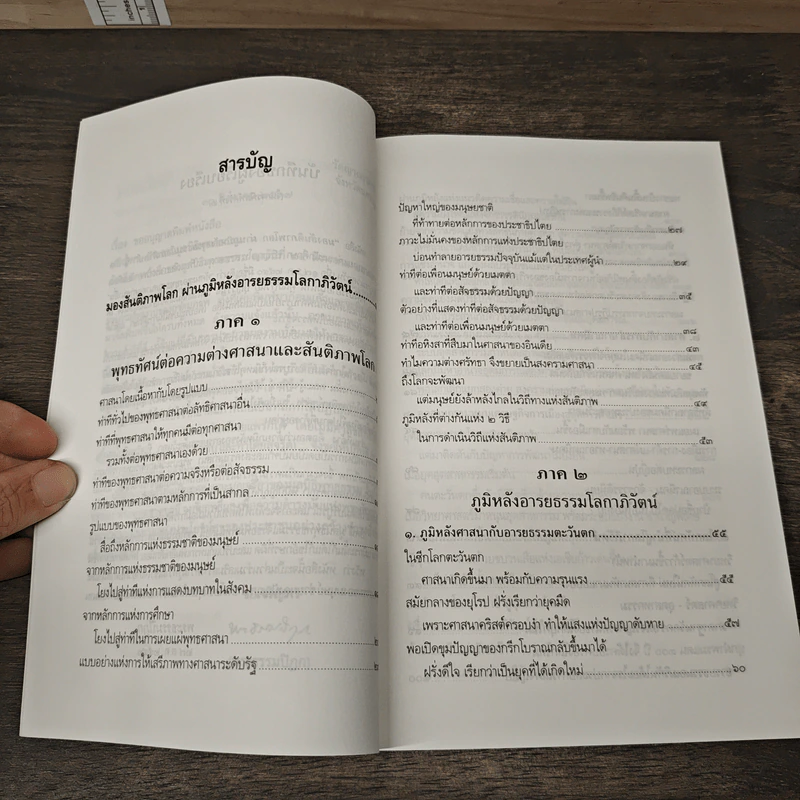 inches
1
สารบัญ
มองสันติภาพโลก ผ่านภูมิหลังอารยธรรมโลกาภิวัตน์
ภาค ๑
พุทธทัศน์ต่อความต่างศาสนาและสันติภาพโลก
ศาสนาโดยเนื้อหากับโดยรูปแบบ
ท่าทีทั่วไปของพุทธศาสนาต่อลัทธิศาสนาอื่น
ท่าทีที่พุทธศาสนาให้ทุกคนมีต่อทุกศาสนา
รวมทั้งต่อพุทธศาสนาเองด้วย
ท่าทีของพุทธศาสนาต่อความจริงหรือต่อสัจธรรม
ท่าทีของพุทธศาสนาตามหลักการที่เป็นสากล
รูปแบบของพุทธศาสนา
สื่อถึงหลักการแห่งธรรมชาติของมนุษย์
จากหลักการแห่งธรรมชาติของมนุษย์
โยงไปสู่ท่าทีแห่งการแสดงบทบาทในสังคม
จากหลักการแห่งการศึกษา
โยงไปสู่ท่าทีในการเผยแผ่พุทธศาสนา
แบบอย่างแห่งการให้เสรีภาพทางศาสนาระดับรัฐ
ปัญหาใหญ่ของมนุษยชาติ
ที่ท้าทายต่อหลักการของประชาธิปไตย ๒๗
ภาวะไม่มั่นคงของหลักการแห่งประชาธิปไตย
บ่อนทำลายอารยธรรมปัจจุบันแม้แต่ในประเทศผู้นำ ๒๙
ท่าทีต่อเพื่อนมนุษย์ด้วยเมตตา
และท่าทีต่อสัจธรรมด้วยปัญญา ๓๕
ตัวอย่างที่แสดงท่าทีต่อสัจธรรมด้วยปัญญา
และท่าทีต่อเพื่อนมนุษย์ด้วยเมตตา ๓๘
ท่าทีอหิงสาที่สืบมาในศาสนาของอินเดีย ๔๓
ทำไมความต่างศรัทธา จึงขยายเป็นสงครามศาสนา ๔๕
ถึงโลกจะพัฒนา
แต่มนุษย์ยังล้าหลังไกลในวิถีทางแห่งสันติภาพ ๔๙
ภูมิหลังที่ต่างกันแห่ง ๒ วิธี
ในการดำเนินวิถีแห่งสันติภาพ ๕๓
ภาค ๒
ภูมิหลังอารยธรรมโลกาภิวัตน์
๑. ภูมิหลังศาสนากับอารยธรรมตะวันตก ๕๕
ในซีกโลกตะวันตก
ศาสนาเกิดขึ้นมา พร้อมกับความรุนแรง ๕๕
สมัยกลางของยุโรป ฝรั่งเรียกว่ายุคมืด
เพราะศาสนาคริสต์ครอบงำ ทำให้แสงแห่งปัญญาดับหาย ๕๗
พอเปิดขุมปัญญาของกรีกโบราณกลับขึ้นมาได้
ฝรั่งดีใจ เรียกว่าเป็นยุคที่ได้เกิดใหม่ ๖๐